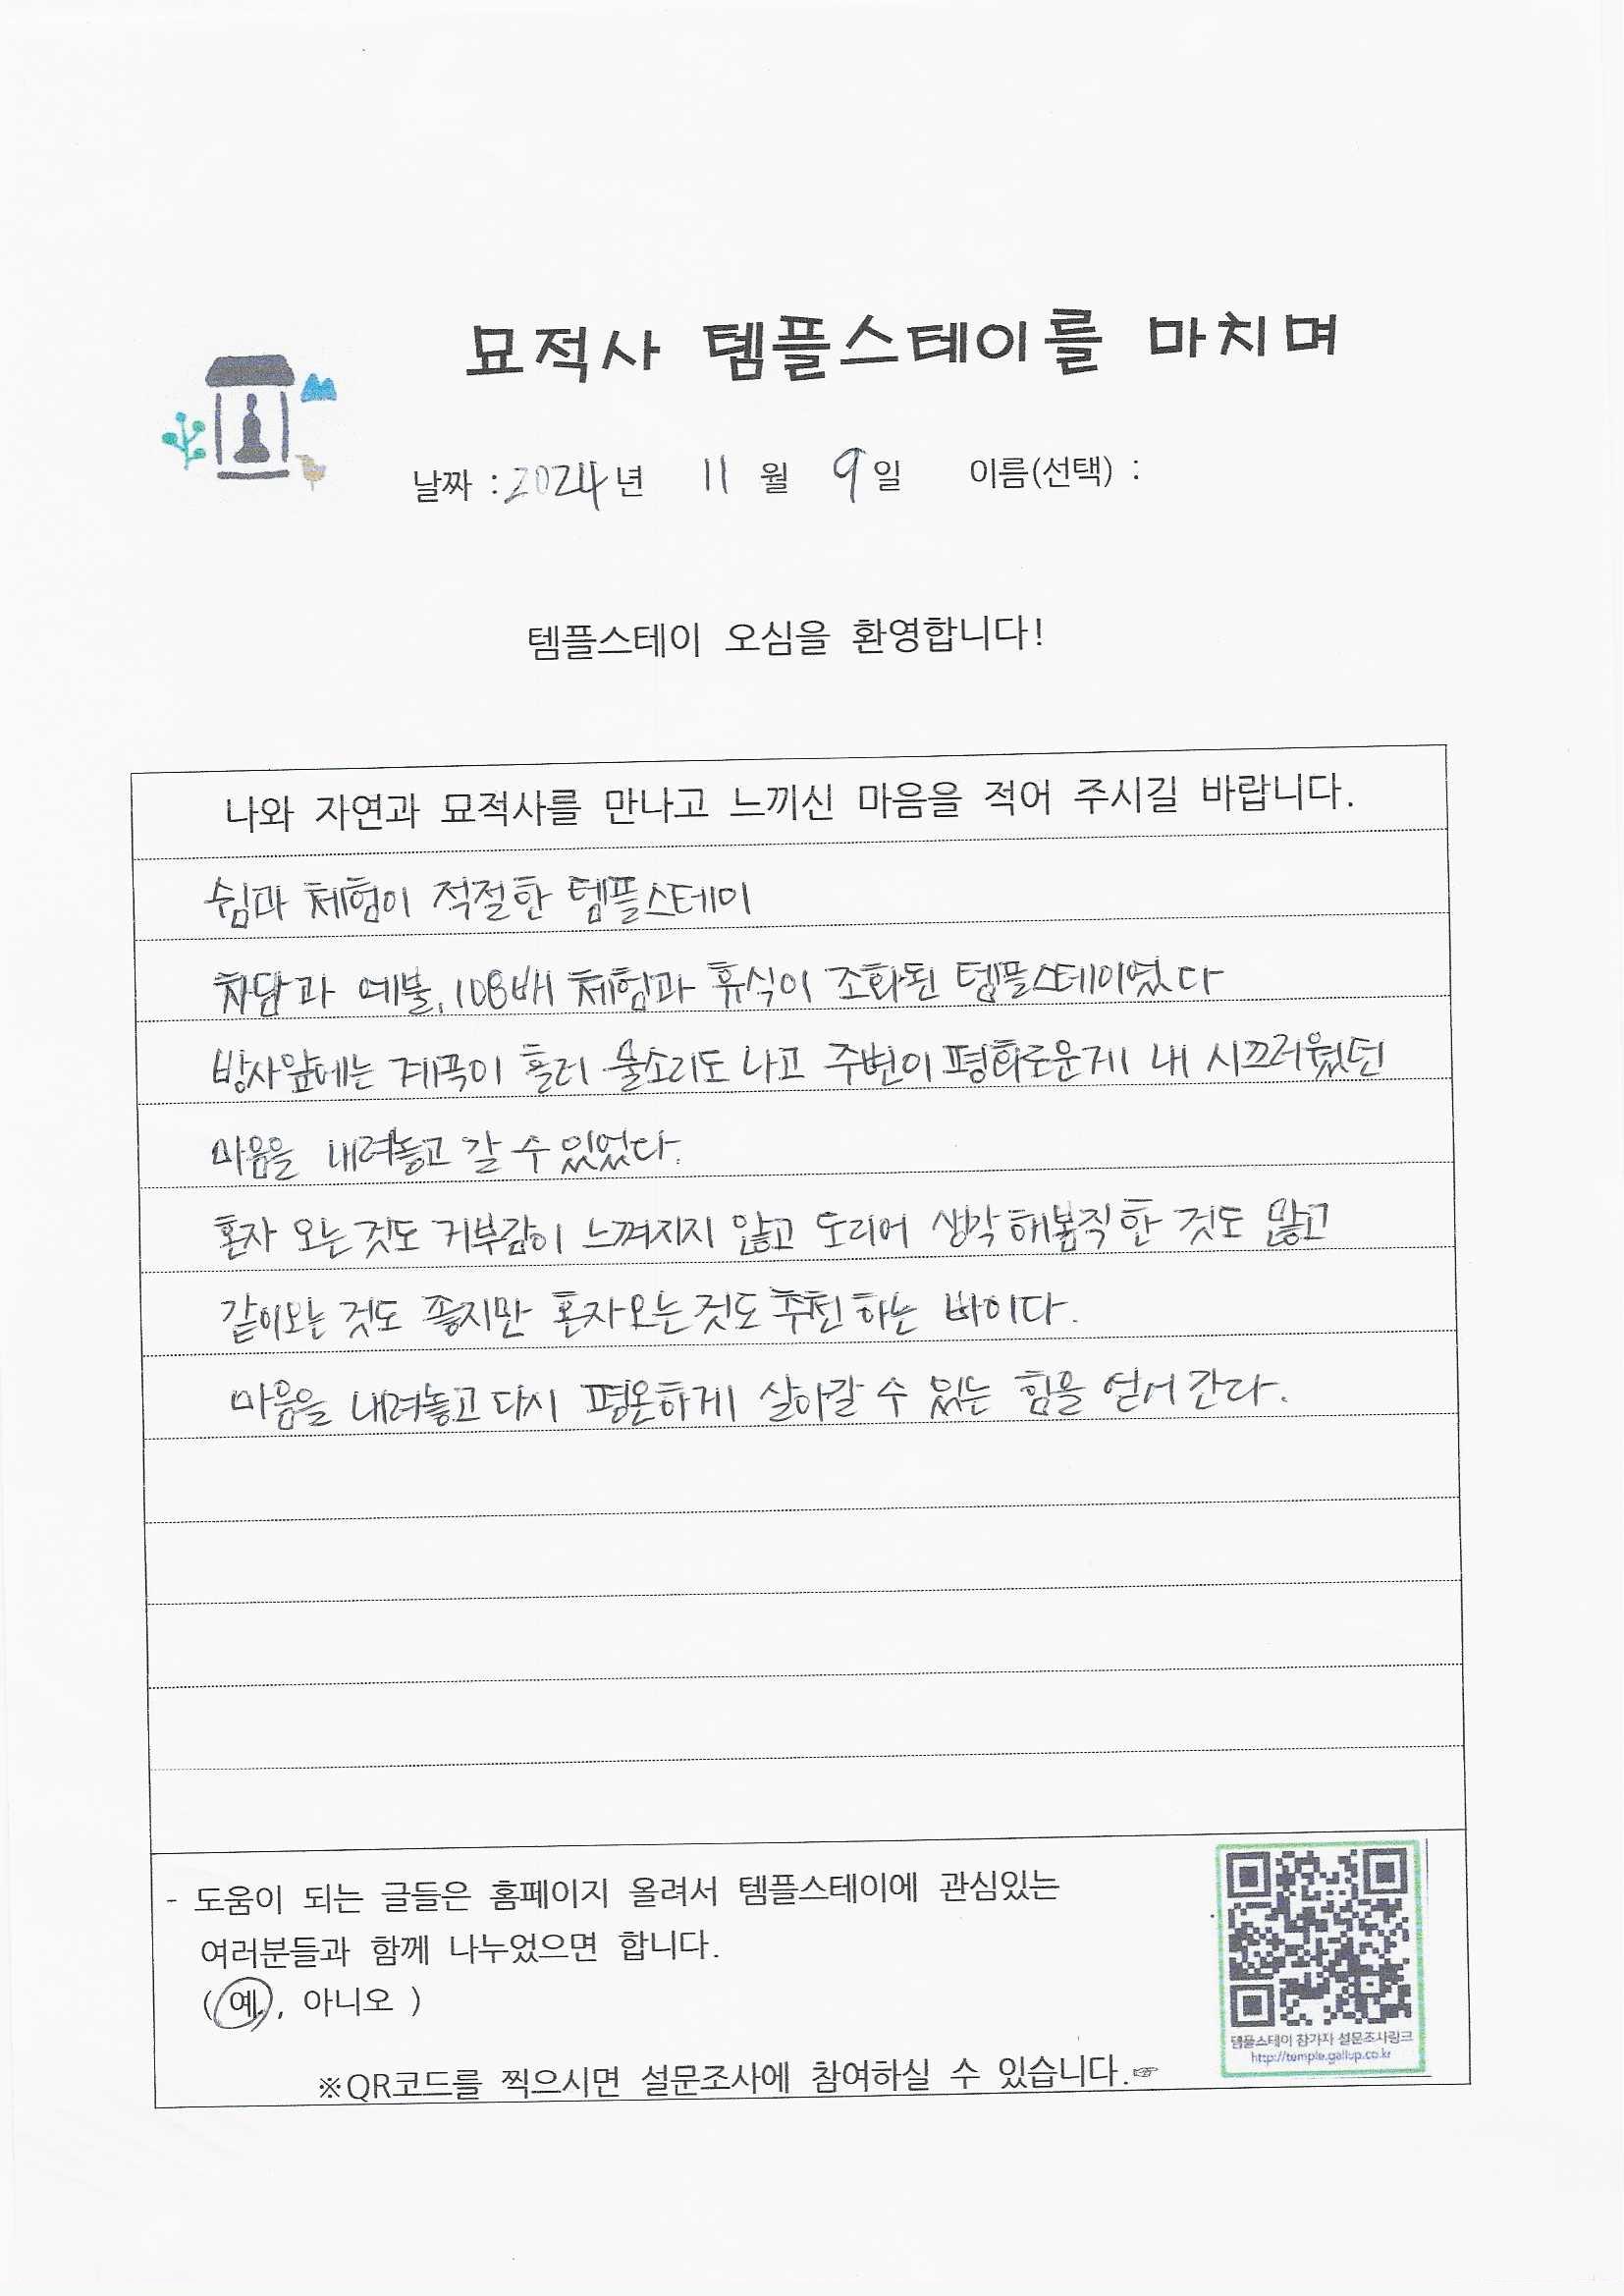 묘적사 템플스테이를 마치며
날짜 : 2024년 11 월 9일 이름(선택) :
템플스테이 오심을 환영합니다!
나와 자연과 묘적사를 만나고 느끼신 마음을 적어 주시길 바랍니다.
쉼과 체험이 적절한 템플스테이
차담과 예불, 108배 체험과 휴식이 조화된 템플스테이였다
방사앞에는 계곡이 흘러 물소리도 나고 주변이 평화로운게 내 시끄러웠던
마음을 내려놓고 갈 수 있었다.
혼자 오는 것도 거부감이 느껴지지 않고 도리어 생각해봄직한 것도 많고
같이오는 것도 좋지만 혼자오는 것도 추천하는 바이다.
마음을 내려놓고 다시 평온하게 살아갈 수 있는 힘을 얻어 간다.
- 도움이 되는 글들은 홈페이지 올려서 템플스테이에 관심있는
여러분들과 함께 나누었으면 합니다.
( 예, 아니오 )
템플스테이 참가자 설문조사링크
http://temple.gallup.co.kr
※QR코드를 찍으시면 설문조사에 참여하실 수 있습니다.☞